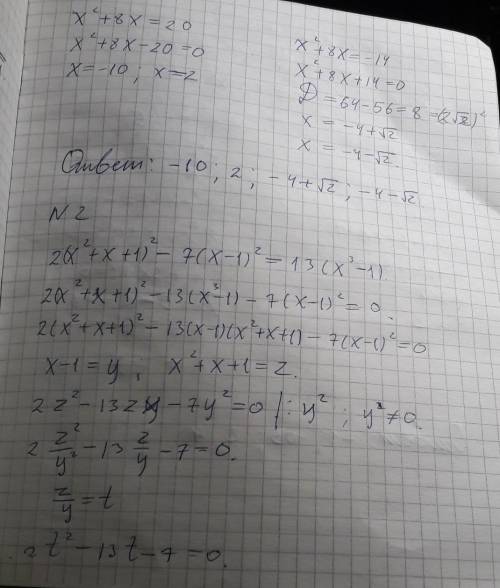 x²+8x=20
x²+8x-20=0
x=-10; x=2
x²+8x=-14
x²+8x+14=0
D=64-56=8=(2√2)²
x=-4+√2
x=-4-√2.
Ответ: -10; 2; -4+√2; -4-√2
N2
2(x²+x+1)²-7(x-1)²=13(x³-1).
2(x²+x+1)²-13(x³-1)-7(x-1)²=0.
2(x²+x+1)²-13(x-1)(x²+x+1)-7(x-1)²=0
x-1=y; x²+x+1=z.
2z²-13zy-7y²=0 |:y²; y²≠0.
2 z²/y²-13 z/y-7=0.
z/y=t
2t²-13t-7=0.